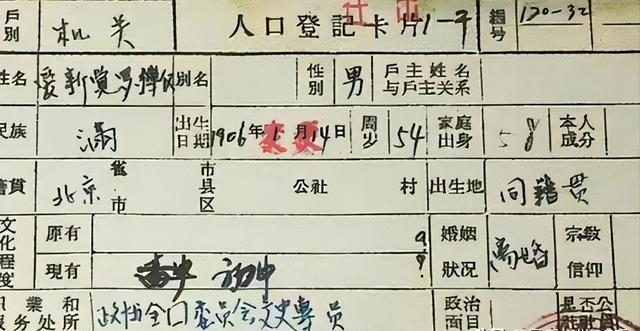 戶別 机关 人口登記卡片 1-干 編号 120-32
姓名 爱新觉罗 別名 性別 男 戶主姓名与戶主关系
民族 滿 出生日期 1906年1月14日 周岁 54 家庭出身 本人成分
籍貫 北京 省市 市县区 公社 村 出生地 同籍贯
文化程度 原有 婚姻狀况 离婚 宗敎信仰
現有 初中
职業和服务处所 政协全国委员会文史专员 政治面目 是否公社社員